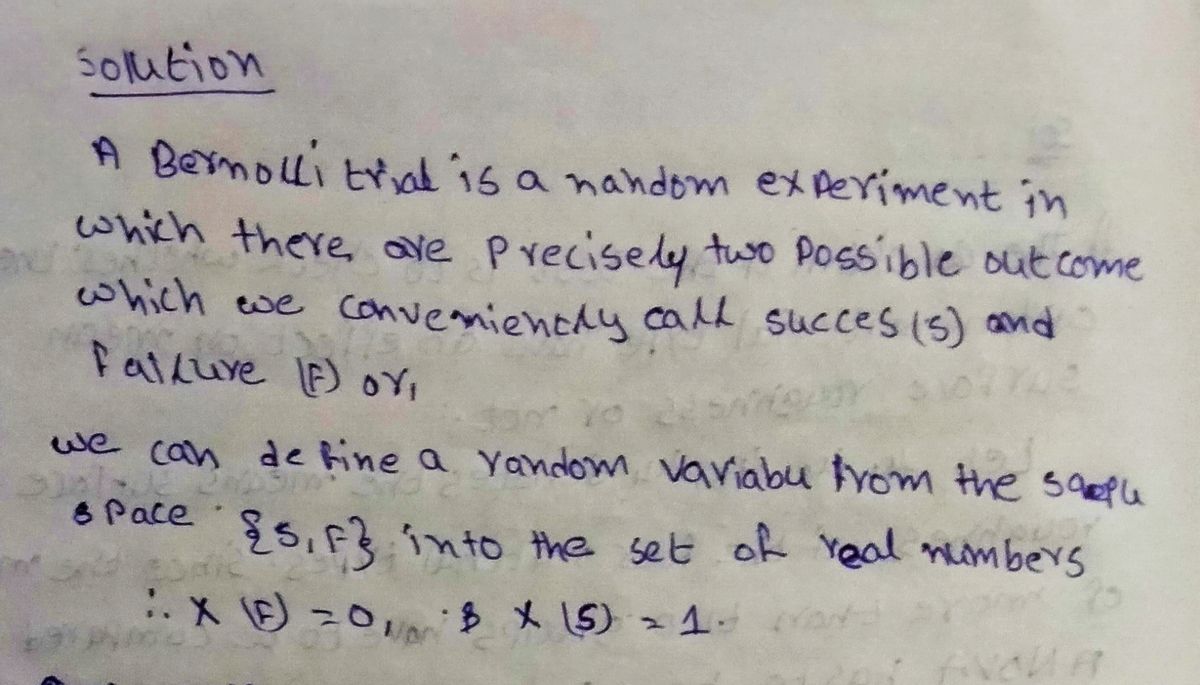 Solution
A Bernolli trial is a random experiment in
which there are precisely two possible outcome
which we conveniently call succes (S) and
Failure (F) or,
we can define a random variabu from the sample
space {S,F} into the set of real numbers
∴ X (F) = 0, & X (S) = 1.